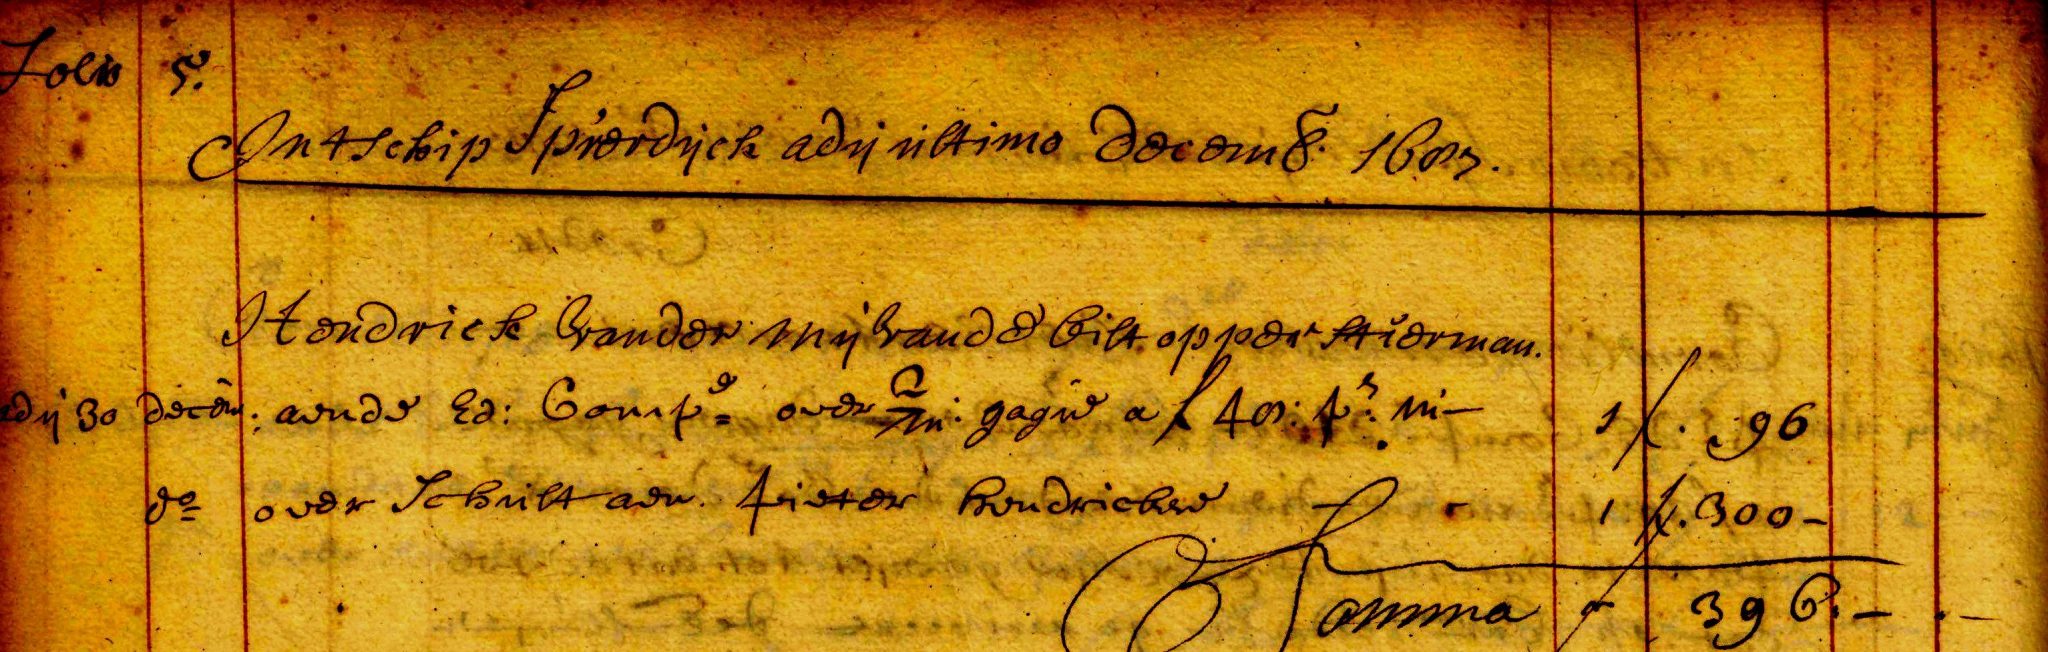 Folio 5.
Int schip Spierdijck adij ultimo Decemb. 1687.
Hendrick vander Mij vande bilt opperstuerman.
adij 30 decem: aende Ed: Compe over 2/m: gagie a f 48: pr: m— 1 f. 96
do over Schult aen Pieter hendrickse — - 1 f. 300—
Somma f 396.— . —